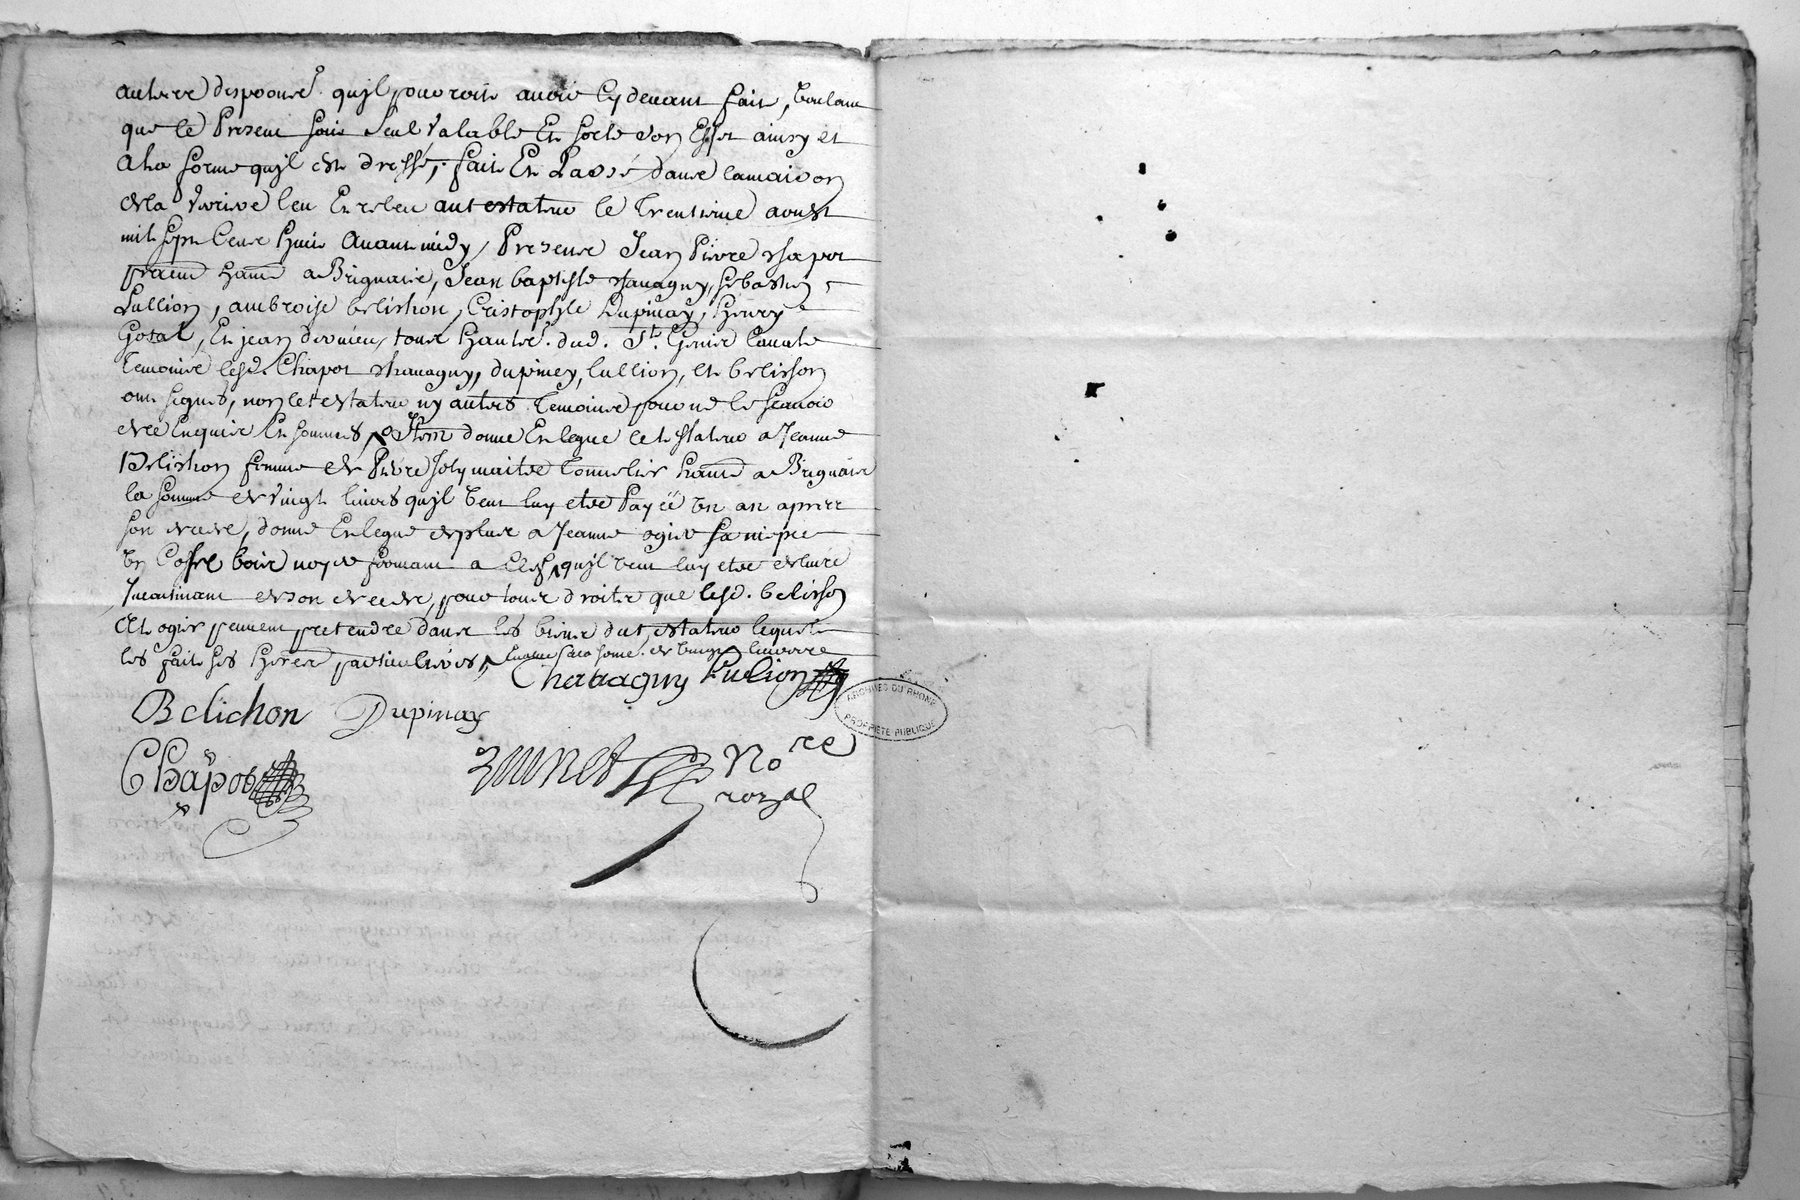 autres dispoons qu'il pouroit avoir cy devant fait, voulant
que le present soit seul valable et sorte son effet ainsy et
a la forme qu'il est dressé, fait et passé dans la maison
de la lieu et releu au testateur le trentieme aoust
mil sept cens huit avant midy, presens Jean Pierre Chapot
habitt a Brignaix, Jean baptiste Chavagny, sebastien
Lullion, ambroise belichon, Cristophle Dupinay, henry
Gosal, et jean tous habits dud. St. Genis Laval
temoins lesd. Chapot Chavagny, dupiney, lullion, et belisson
ont signés, non le testateur ny autres temoins pour ne le scavoir
de ce enquis et sommés, Item donne et legue le testateur a Jeanne
Belichon femme de Pierre Joly maitre tonnelier habitt a Brignaix
la somme de vingt livres qu'il veut luy etre payéé un an apres
son deces, donne et legue de plus a Jeanne ogier sa niepce
un coffre bois noyer fermant a clef, qu'il veut luy etre delivré
Incontinant de son deces, pour tous droits que lesd. belisson
et ogier peuvent pretendre dans les biens du testateur lequel
les fait ses heres particulieres,
Chavagny Lulion
Belichon Dupinay
Chapot
No re
royal
ARCHIVES DU RHONE
PROPRIETE PUBLIQUE